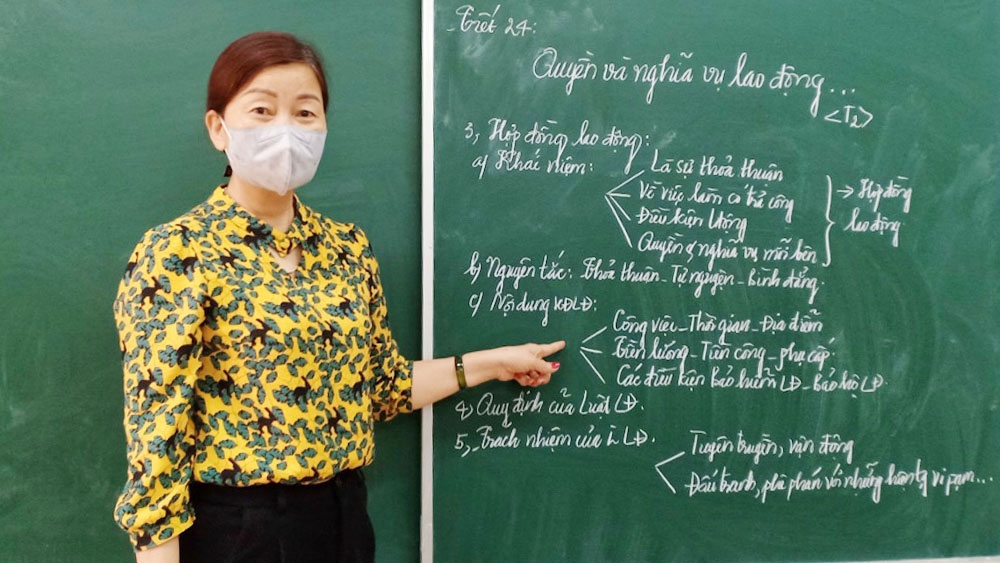 Tiết 24:
Quyền và nghĩa vụ lao động...
<T2>
3, Hợp đồng lao động:
a) Khái niệm:
Là sự thoả thuận
Về việc làm có trả công
Điều kiện lđộng
Quyền & nghĩa vụ mỗi bên
→ Hợp đồng
lao động
b) Nguyên tắc: Thoả thuận - Tự nguyện - Bình đẳng.
c) Nội dung HĐLĐ:
Công việc - Thời gian - Địa điểm
Tiền lương - Tiền công - phụ cấp.
Các điều kiện bảo hiểm LĐ - Bảo hộ LĐ.
4) Quy định của Luật LĐ.
5, Trách nhiệm của LĐ.
Tuyên truyền, vận động
Đấu tranh, phê phán với những vi phạm...